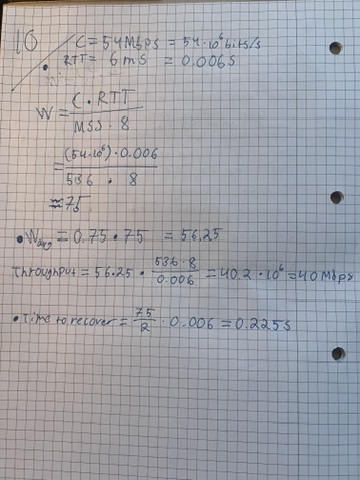 10
C = 54Mbps = 54·10⁶bits/s
RTT = 6ms = 0.006s
W = C·RTT / MSS·8
= (54·10⁶)·0.006 / 536·8
≈75
•Wavg = 0.75·75 = 56,25
Throughput = 56.25 · 536·8 / 0.006 = 40.2·10⁶ = 40Mbps
•Time to recover = 75/2 · 0.006 = 0.225s